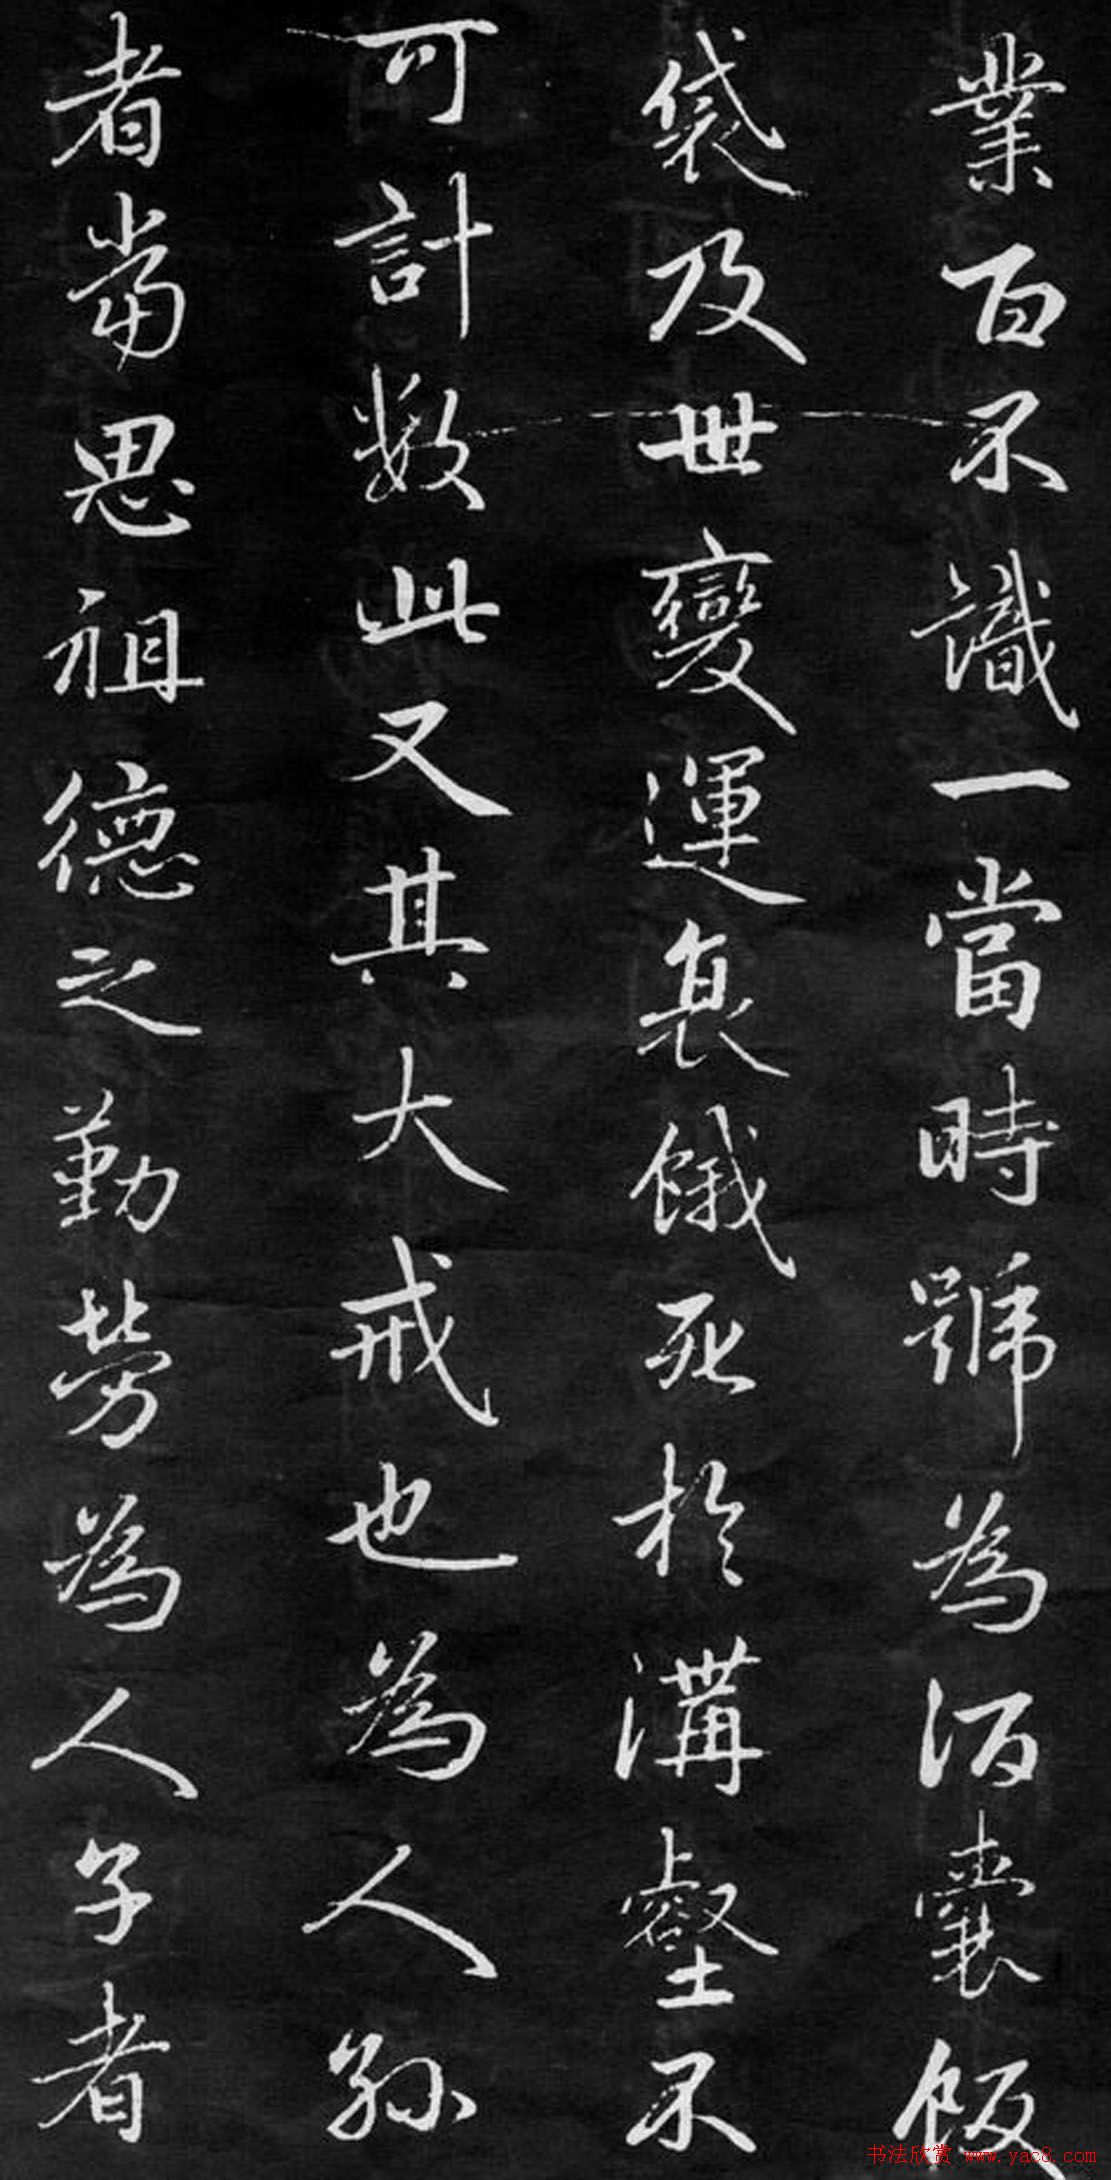 業百不識一當時號為酒囊飯
袋及世變運衰餓死於溝壑不
可計數此又其大戒也為人孫
者當思祖德之勤勞為人子者
书法欣赏 www.yac8.com